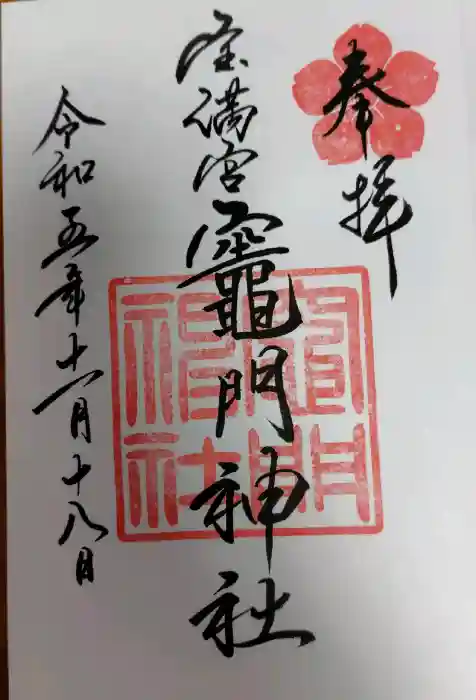 奉拝
宝満宮竈門神社
令和五年十一月十八日
竈門
神社